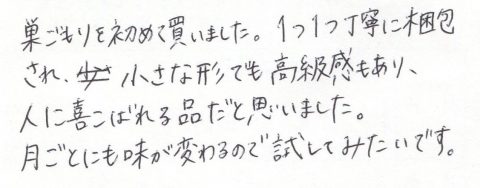 巣ごもりを初めて買いました。1つ1つ丁寧に梱包
され、小さな形でも高級感もあり、
人に喜こばれる品だと思いました。
月ごとにも味が変わるので試してみたいです。